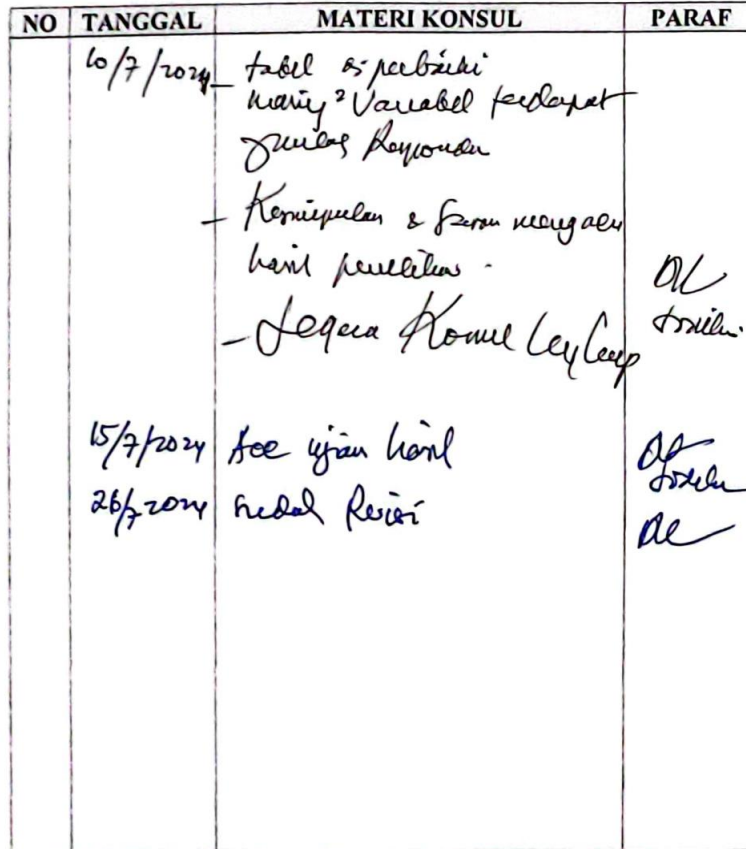 NO TANGGAL MATERI KONSUL PARAF
10/7/2024 - tabel diperbaiki
masing² Variabel terdapat
Responden
- Kesimpulan & Saran mengacu
hasil penelitian.
- Segera Konsul Lengkap
15/7/2024 Acc ujian hasil
26/7 2024 sudah Revisi